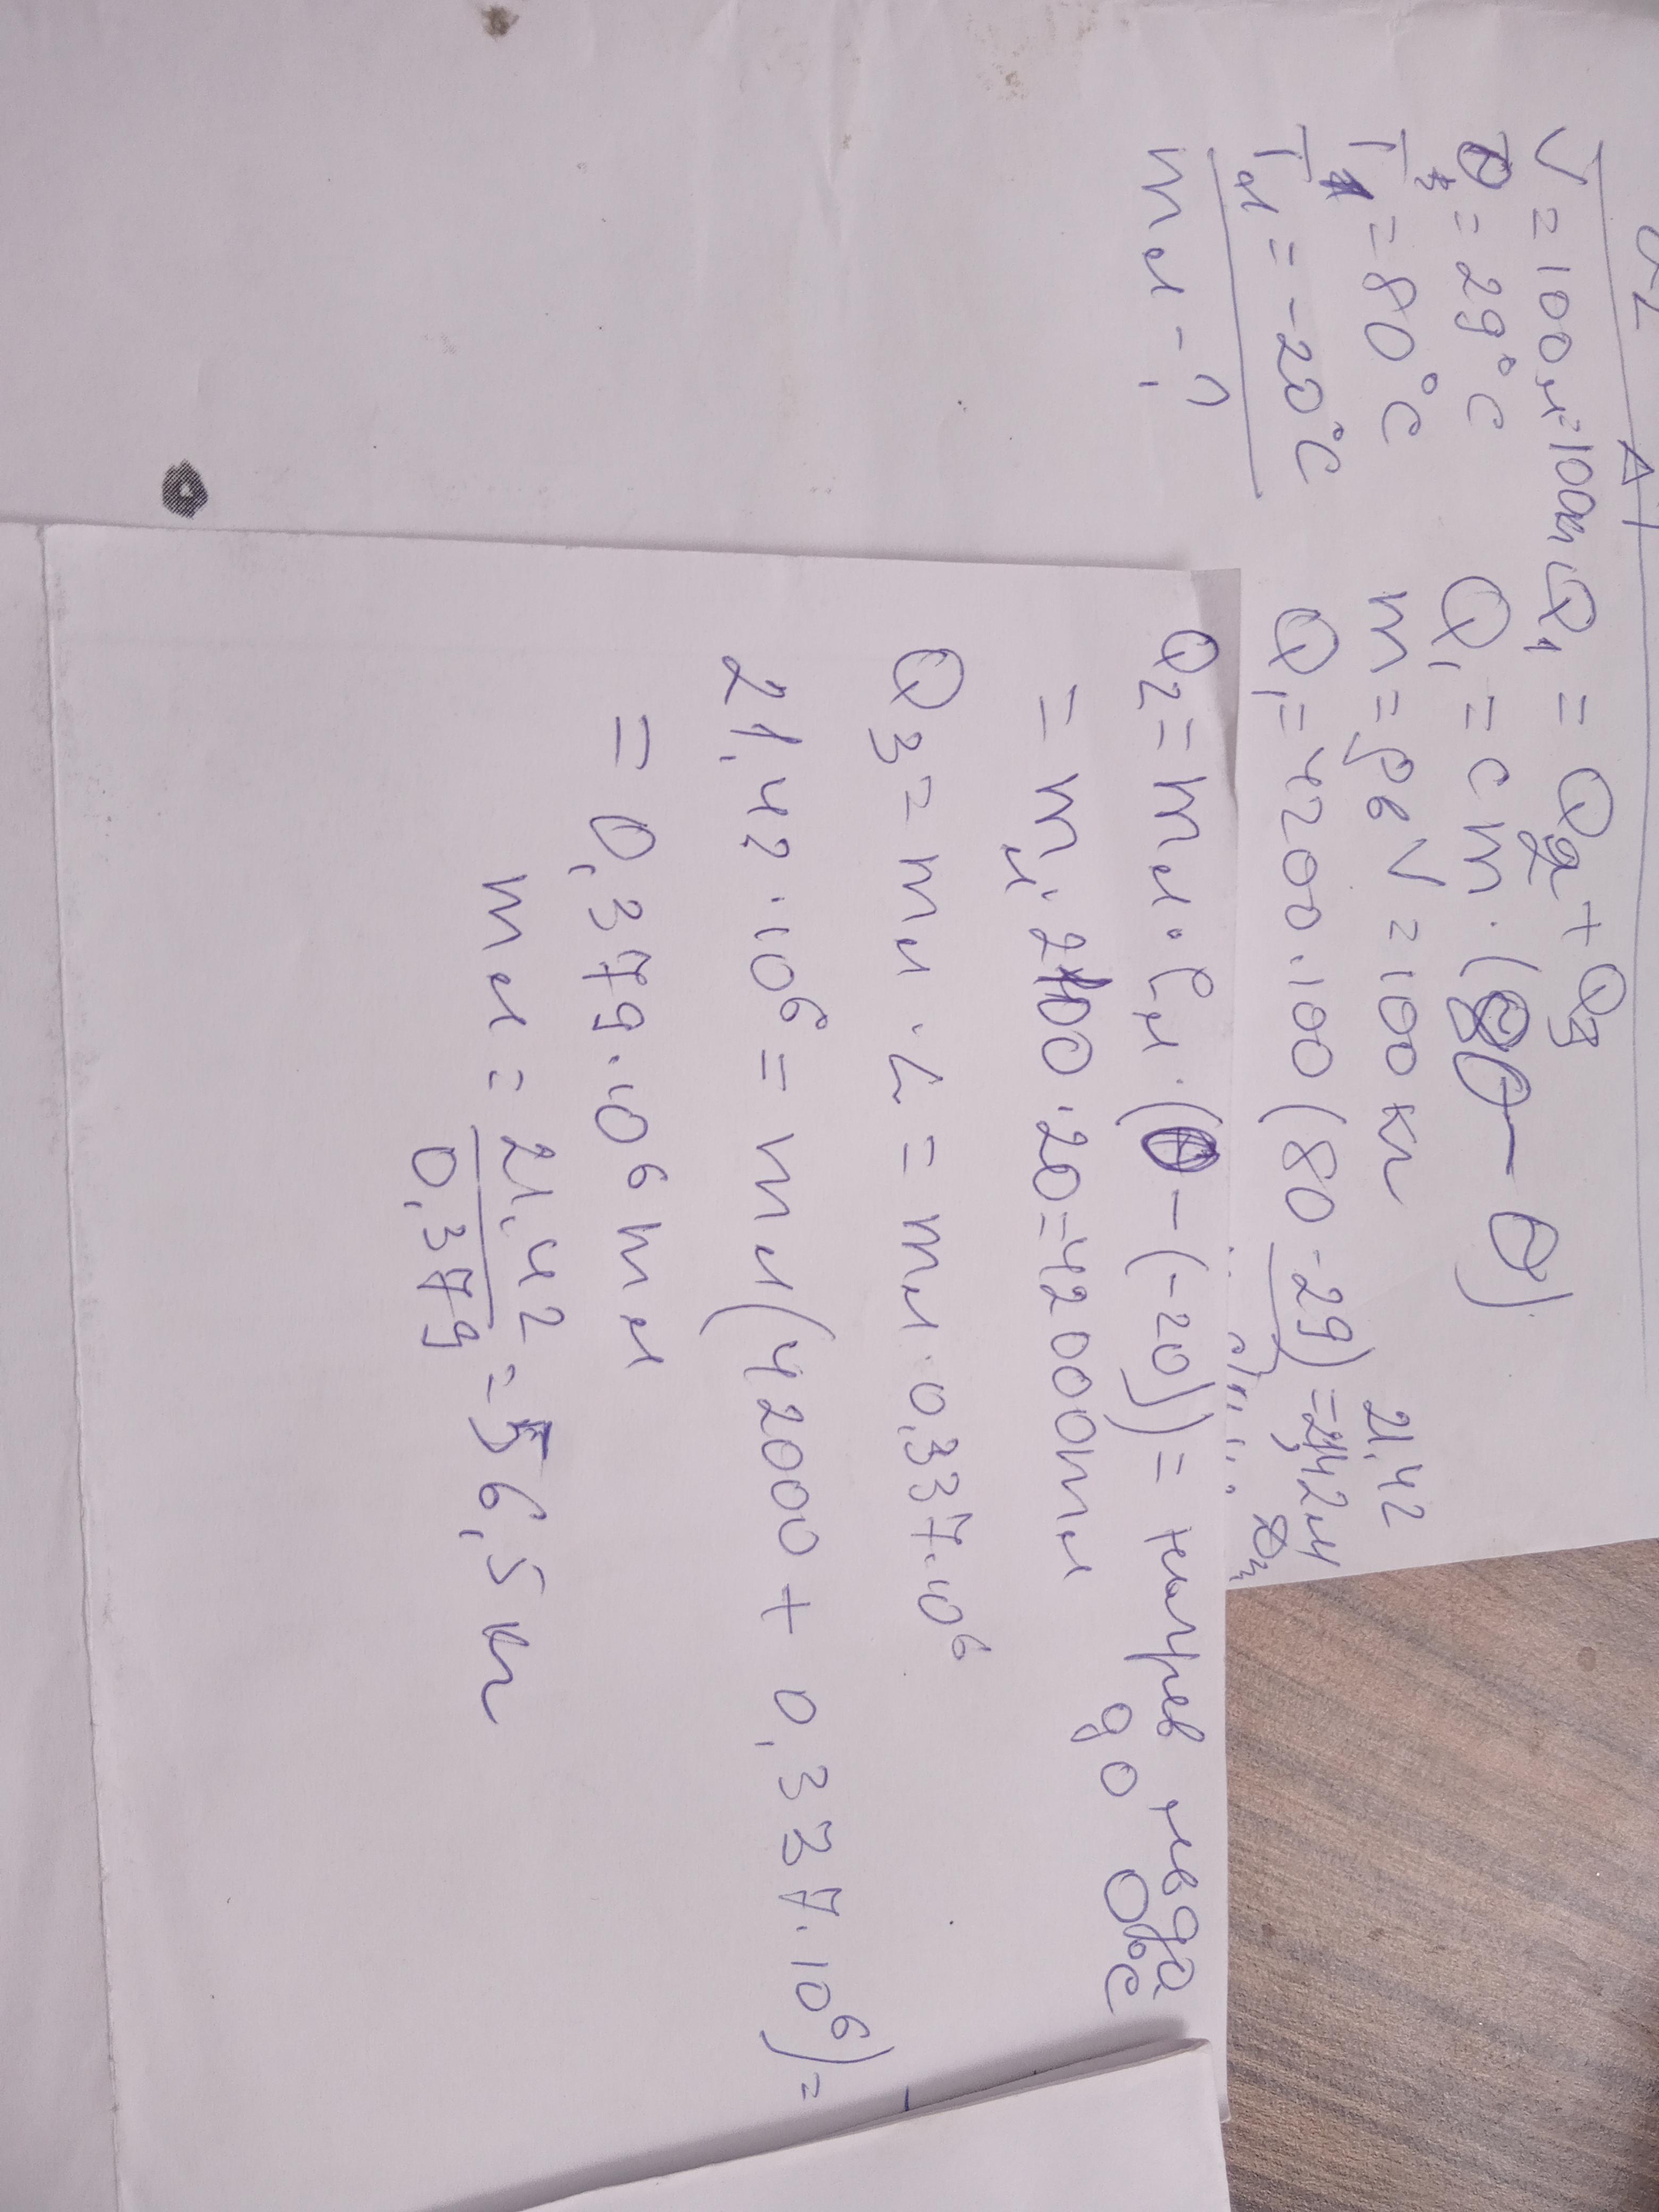 V = 100 л = 100 кг
θ = 29°C
T₂ = 80°C
Tл = -20°C
mл - ?
Q₁ = Q₂ + Q₃
Q₁ = cm · (80 - θ)
m = ρв V = 100 кг
21,42
Q₁ = 4200 · 100 (80 - 29) = 21,42 М
Дж
Q₂ = mл · Cл · (0 - (-20)) = нагрев льда
до 0°C
= mл · 2100 · 20 = 42000 mл
Q₃ = mл · L = mл · 0,337 · 10⁶
21,42 · 10⁶ = mл (42000 + 0,337 · 10⁶) =
= 0,379 · 10⁶ mл
mл = 21,42 / 0,379 = 56,5 кг